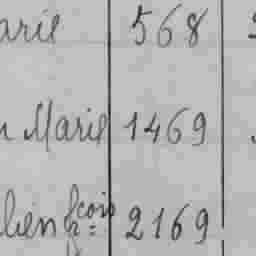 arie 568
Marie 1469
lien fçois 2169